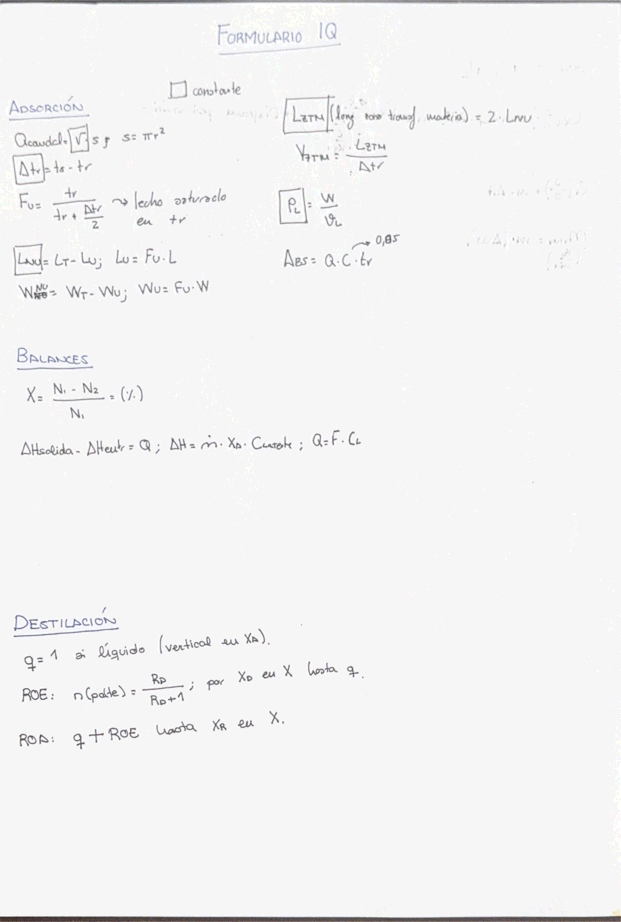 FORMULARIO IQ
□ constante
ADSORCIÓN
Qcaudal = V · s ; s = πr²
Δtr = ts - tr
Fu = tr / (tr + Δtr/2) → lecho saturado en tr
LNU = LT - LU; LU = FU · L
WNU = WT - WU; WU = FU · W
LZTM (long zona transf. materia) = 2 · LNU
VZTM = LZTM / Δtr
ρL = W / VL
ABS = Q · C · tr → 0,05
BALANCES
X = (N1 - N2) / N1 = (%)
ΔHsalida - ΔHentr = Q ; ΔH = ṁ · XA · Cursate ; Q = F · CL
DESTILACIÓN
q = 1 si líquido (vertical en XA).
ROE: n(pdte) = RD / (RD + 1) ; por XD en X hasta q.
ROA: q + ROE hasta XR en X.